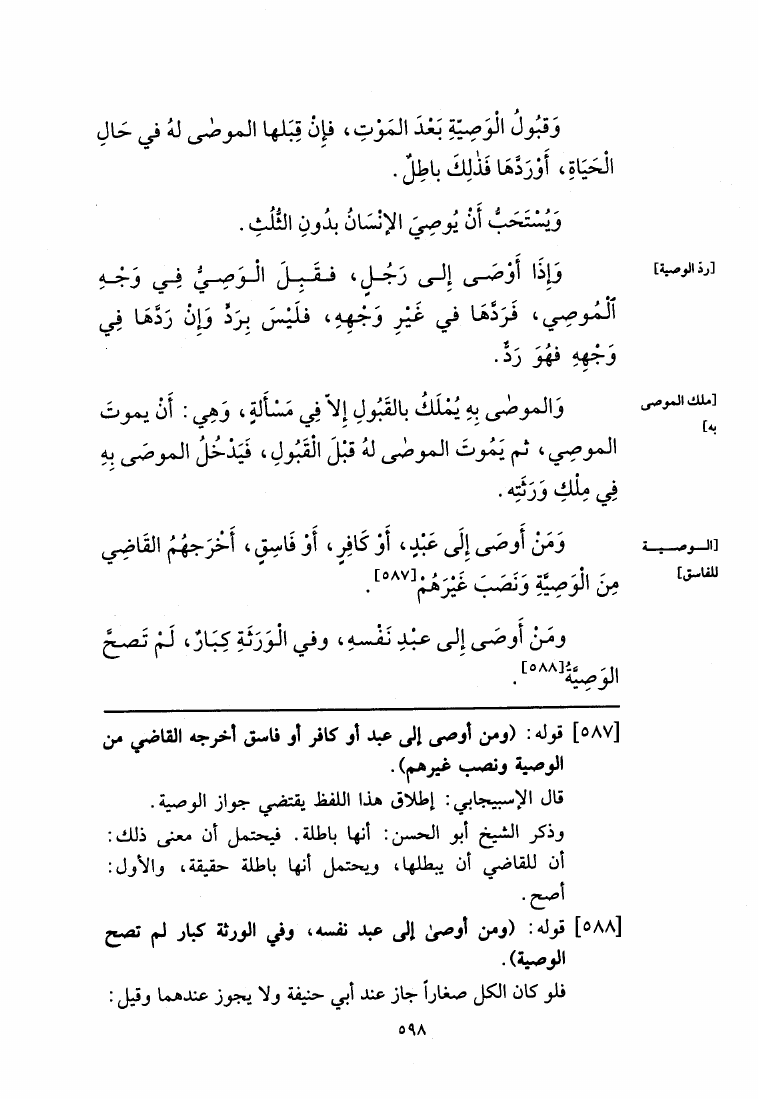 وَقبُولُ الْوَصِيّةِ بَعْدَ المَوْتِ، فإنْ قِبَلها الموصٰى لهُ في حَالِ
الْحَيَاةِ، أَوْرَدَّهَا فَذٰلِكَ باطِلٌ.
وَيُسْتَحَبُّ أنْ يُوصِيَ الإنْسَانُ بدُونِ الثُّلُثِ.
[ردّ الوصية]
وَإِذَا أَوْصَى إلى رَجُلٍ، فقَبِلَ الْوَصِيُّ فِي وَجْهِ
ٱلْمُوصِي، فَرَدَّهَا في غَيْرِ وَجْهِهِ، فلَيْسَ بِرَدٍّ وَإنْ رَدَّهَا فِي
وَجْهِهِ فهُوَ رَدٌّ.
[ملك الموصى
به]
وَالموصٰى بِهِ يُمْلَكُ بالقَبُولِ إلاّ فِي مَسْألةٍ، وَهِي: أنْ يموتَ
الموصِي، ثم يَمُوتَ الموصٰى لهُ قبْلَ الْقَبُولِ، فَيَدْخُلُ الموصَى بِهِ
فِي مِلْكِ وَرَثَتِه.
[الوصية
للفاسق]
وَمَنْ أوصَى إلَى عَبْدٍ، أوْ كَافِرٍ، أوْ فَاسِقٍ، أخْرَجهُمُ القَاضِي
مِنَ الْوَصِيَّةِ وَنَصَبَ غَيْرَهُمْ[٥٨٧].
ومَنْ أوصَى إلى عبْدِ نَفْسهِ، وفي الْوَرَثَةِ كِبَارٌ، لَمْ تَصحَّ
الوَصِيَّةُ[٥٨٨].
[٥٨٧] قوله: (ومن أوصى إلى عبد أو كافر أو فاسق أخرجه القاضي من
الوصية ونصب غيرهم).
قال الإسبيجابي: إطلاق هذا اللفظ يقتضي جواز الوصية.
وذكر الشيخ أبو الحسن: أنها باطلة. فيحتمل أن معنى ذلك:
أن للقاضي أن يبطلها، ويحتمل أنها باطلة حقيقة، والأول:
أصح.
[٥٨٨] قوله: (ومن أوصىٰ إلى عبد نفسه، وفي الورثة كبار لم تصح
الوصية).
فلو كان الكل صغاراً جاز عند أبي حنيفة ولا يجوز عندهما وقيل:
٥٩٨